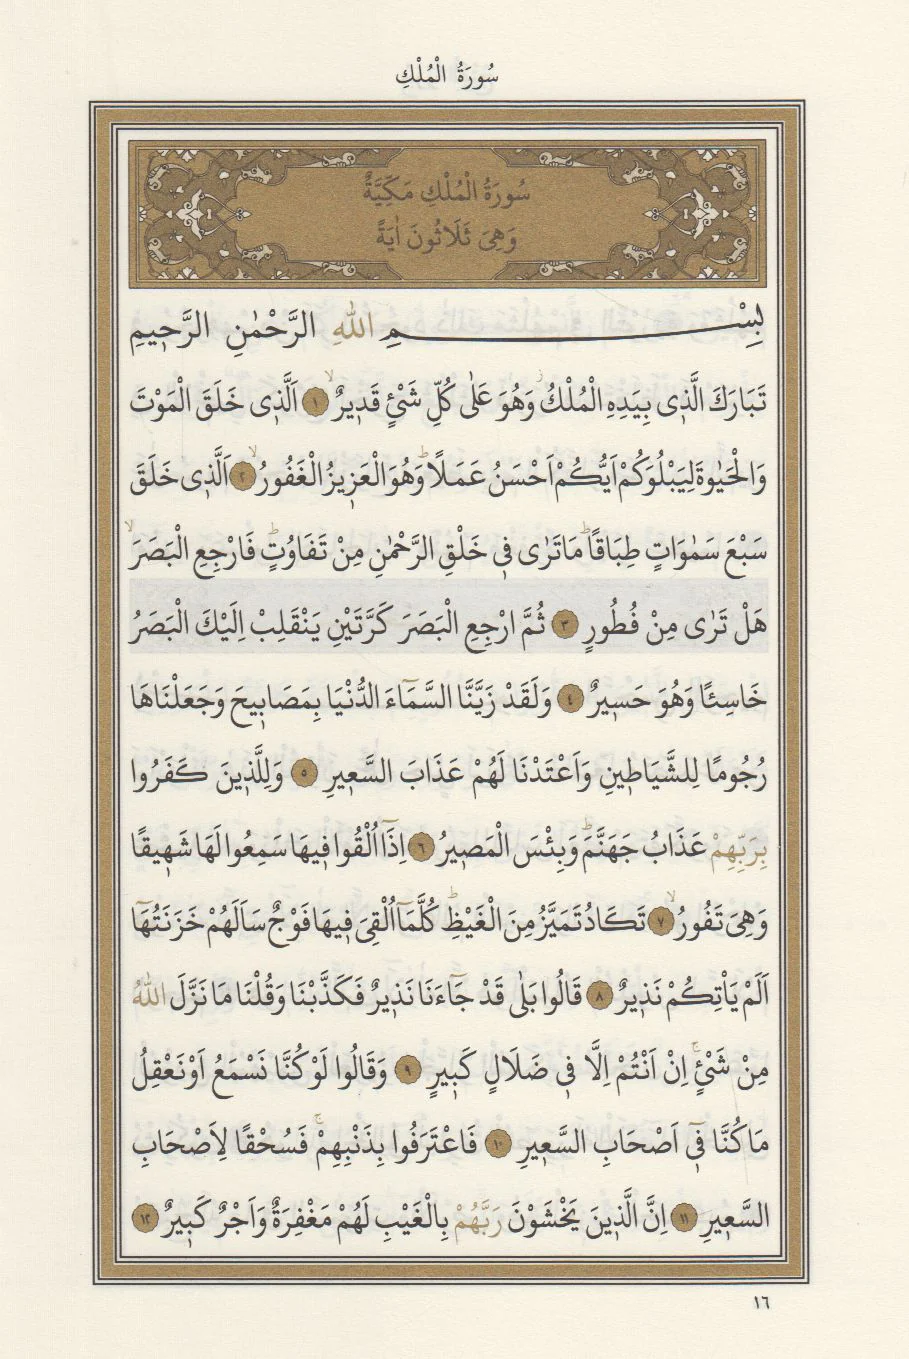 سُورَةُ الْمُلْكِ
سُورَةُ الْمُلْكِ مَكِّيَّةٌ
وَهِيَ ثَلَاثُونَ اٰيَةً
بِسْمِ اللّٰهِ الرَّحْمٰنِ الرَّح۪يمِ
تَبَارَكَ الَّذ۪ى بِيَدِهِ الْمُلْكُۘ وَهُوَ عَلٰى كُلِّ شَيْئٍ قَد۪يرٌۙ ﴿١﴾ اَلَّذ۪ى خَلَقَ الْمَوْتَ
وَالْحَيٰوةَ لِيَبْلُوَكُمْ اَيُّكُمْ اَحْسَنُ عَمَلًاۜ وَهُوَ الْعَز۪يزُ الْغَفُورُۙ ﴿٢﴾ اَلَّذ۪ى خَلَقَ
سَبْعَ سَمٰوَاتٍ طِبَاقًاۜ مَا تَرٰى ف۪ى خَلْقِ الرَّحْمٰنِ مِنْ تَفَاوُتٍۜ فَارْجِعِ الْبَصَرَۙ
هَلْ تَرٰى مِنْ فُطُورٍ ﴿٣﴾ ثُمَّ ارْجِعِ الْبَصَرَ كَرَّتَيْنِ يَنْقَلِبْ اِلَيْكَ الْبَصَرُ
خَاسِئًا وَهُوَ حَس۪يرٌ ﴿٤﴾ وَلَقَدْ زَيَّنَّا السَّمَٓاءَ الدُّنْيَا بِمَصَاب۪يحَ وَجَعَلْنَاهَا
رُجُومًا لِلشَّيَاط۪ينِ وَاَعْتَدْنَا لَهُمْ عَذَابَ السَّع۪يرِ ﴿٥﴾ وَلِلَّذ۪ينَ كَفَرُوا
بِرَبِّهِمْ عَذَابُ جَهَنَّمَۜ وَبِئْسَ الْمَص۪يرُ ﴿٦﴾ اِذَٓا اُلْقُوا ف۪يهَا سَمِعُوا لَهَا شَه۪يقًا
وَهِيَ تَفُورُۙ ﴿٧﴾ تَكَادُ تَمَيَّزُ مِنَ الْغَيْظِۜ كُلَّمَٓا اُلْقِيَ ف۪يهَا فَوْجٌ سَاَلَهُمْ خَزَنَتُهَٓا
اَلَمْ يَاْتِكُمْ نَذ۪يرٌ ﴿٨﴾ قَالُوا بَلٰى قَدْ جَٓاءَنَا نَذ۪يرٌ فَكَذَّبْنَا وَقُلْنَا مَا نَزَّلَ اللّٰهُ
مِنْ شَيْئٍۚ اِنْ اَنْتُمْ اِلَّا ف۪ى ضَلَالٍ كَب۪يرٍ ﴿٩﴾ وَقَالُوا لَوْ كُنَّا نَسْمَعُ اَوْ نَعْقِلُ
مَا كُنَّا ف۪ٓى اَصْحَابِ السَّع۪يرِ ﴿١٠﴾ فَاعْتَرَفُوا بِذَنْبِهِمْۚ فَسُحْقًا لِاَصْحَابِ
السَّع۪يرِ ﴿١١﴾ اِنَّ الَّذ۪ينَ يَخْشَوْنَ رَبَّهُمْ بِالْغَيْبِ لَهُمْ مَغْفِرَةٌ وَاَجْرٌ كَب۪يرٌ ﴿١٢﴾
١٦